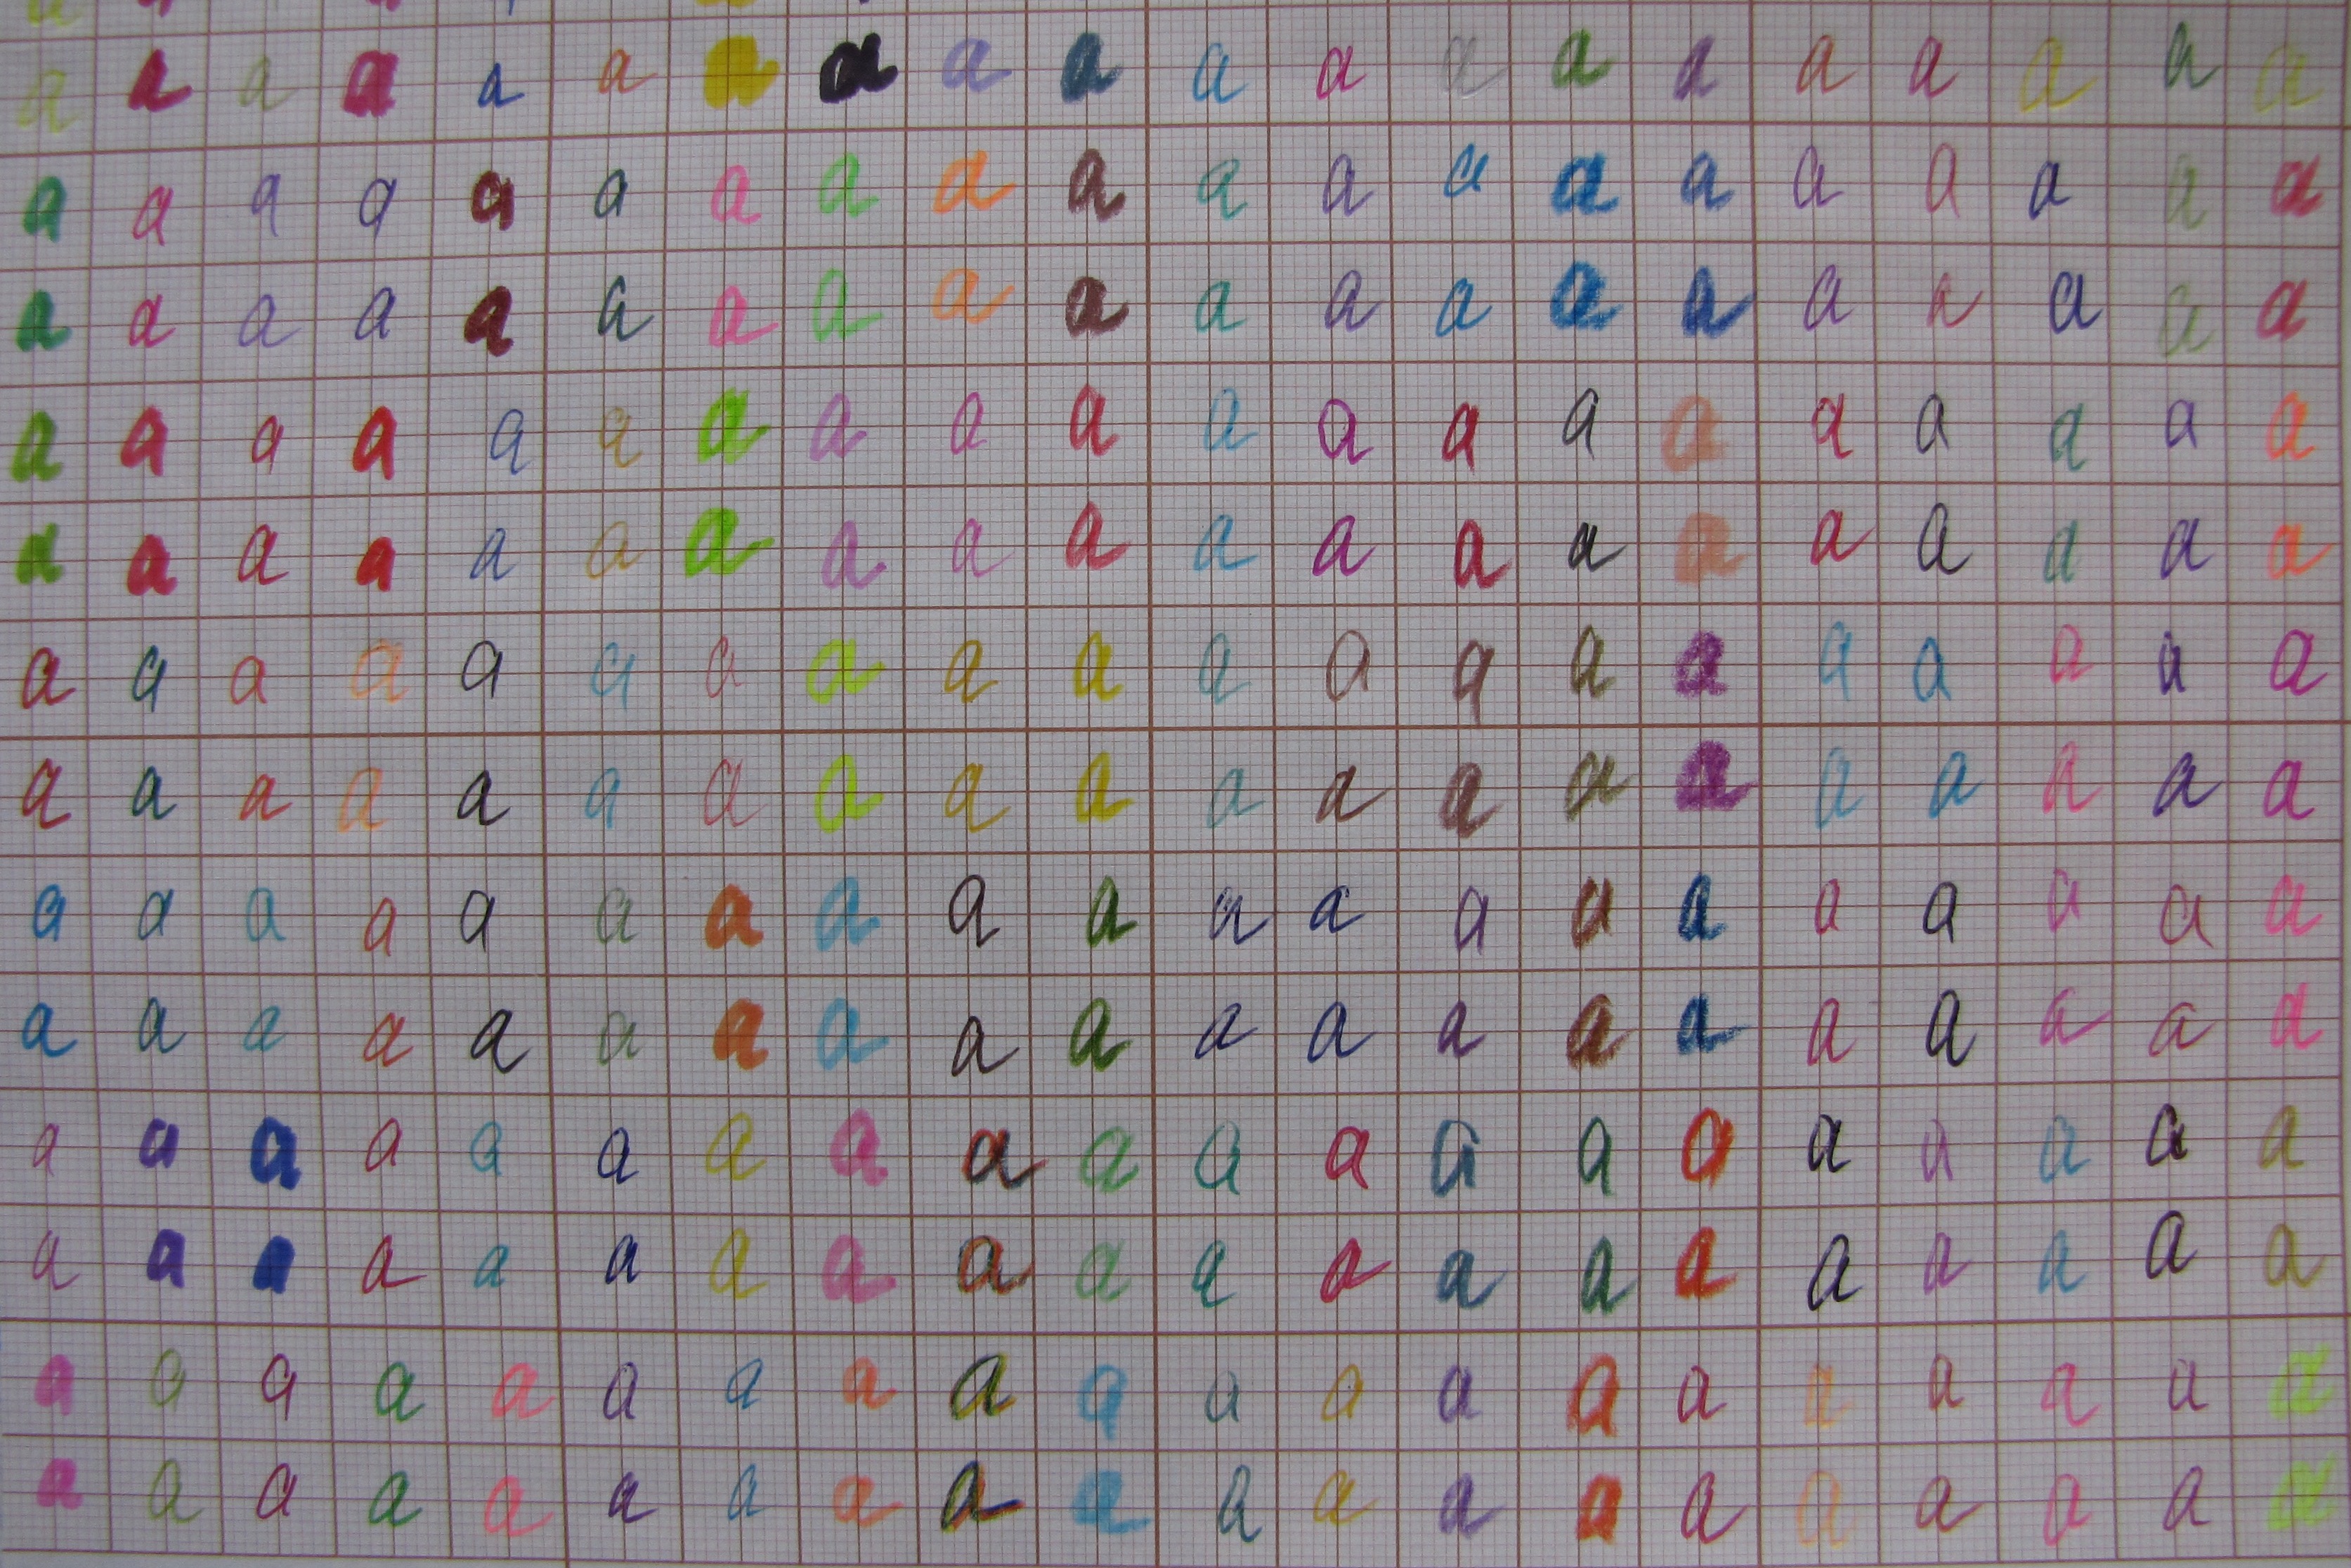 a a a a a a a a a a a a a a a a a a a a
a a a a a a a a a a a a a a a a a a a a
a a a a a a a a a a a a a a a a a a a a
a a a a a a a a a a a a a a a a a a a a
a a a a a a a a a a a a a a a a a a a a
a a a a a a a a a a a a a a a a a a a a
a a a a a a a a a a a a a a a a a a a a
a a a a a a a a a a a a a a a a a a a a
a a a a a a a a a a a a a a a a a a a a
a a a a a a a a a a a a a a a a a a a a
a a a a a a a a a a a a a a a a a a a a
a a a a a a a a a a a a a a a a a a a a
a a a a a a a a a a a a a a a a a a a a